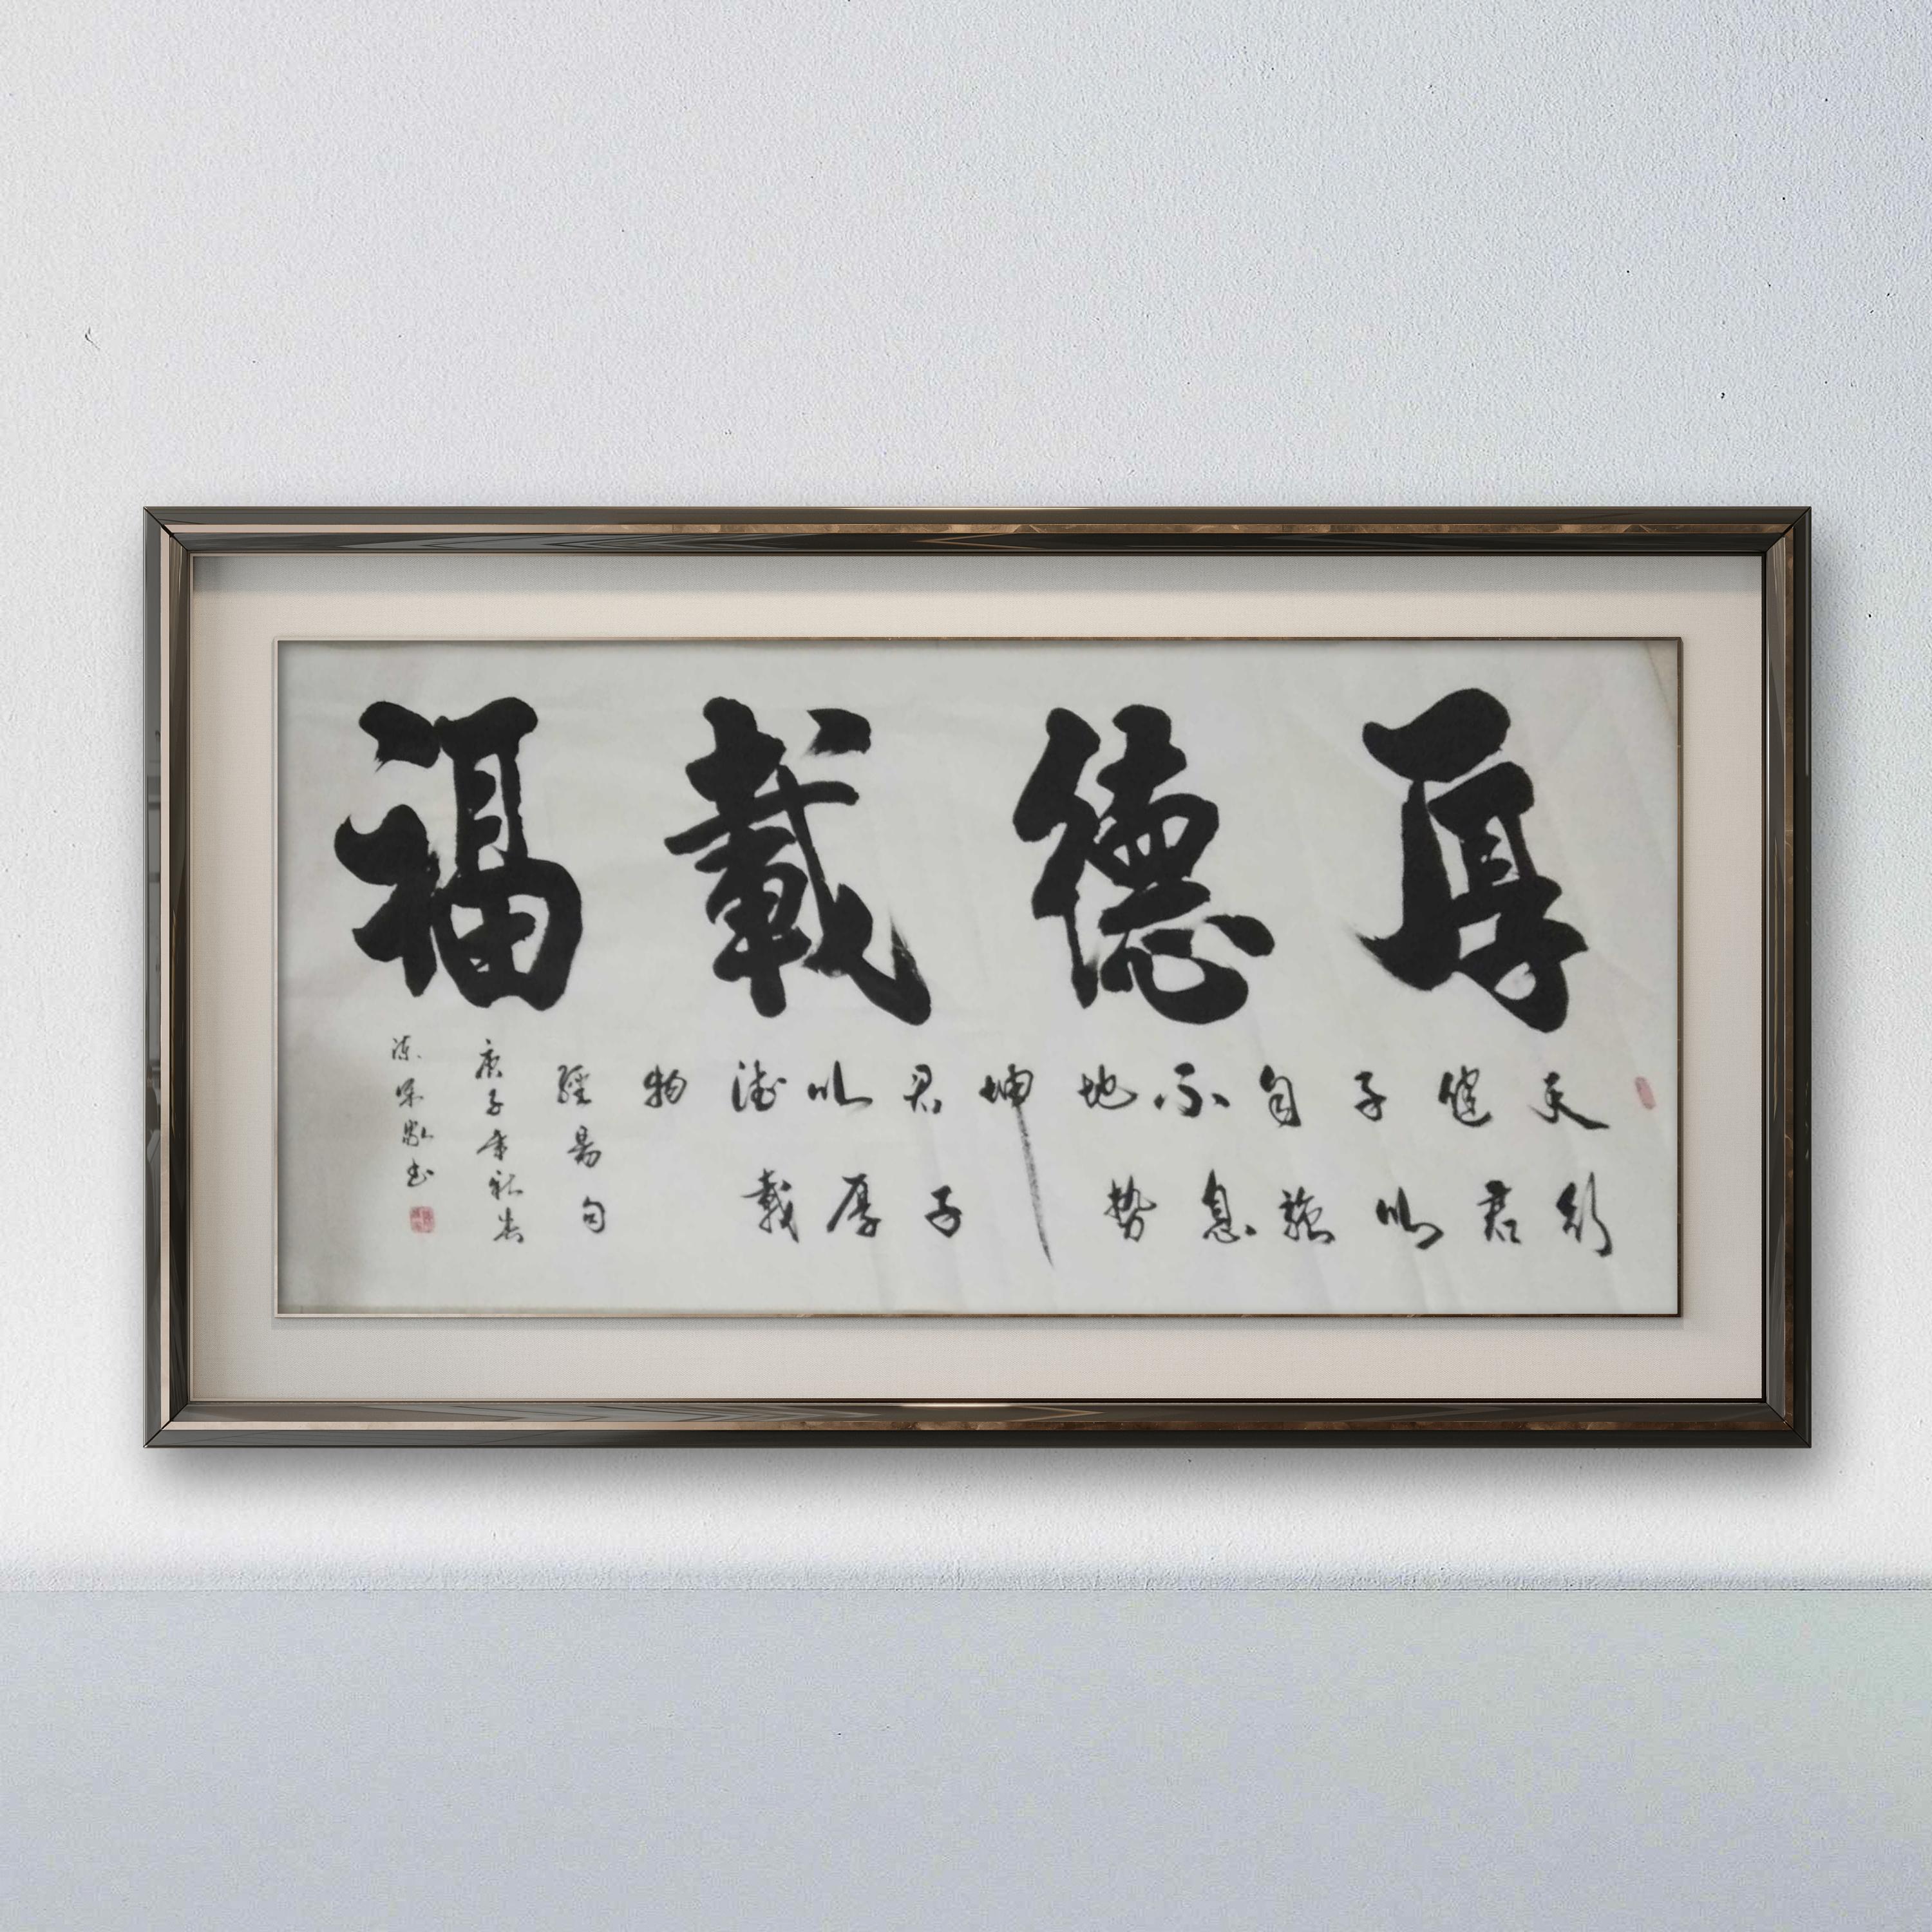 厚德載福
天行
健君
子以
自強
不息
地勢
坤
君子
以厚
德載
物
經易句
庚子秋